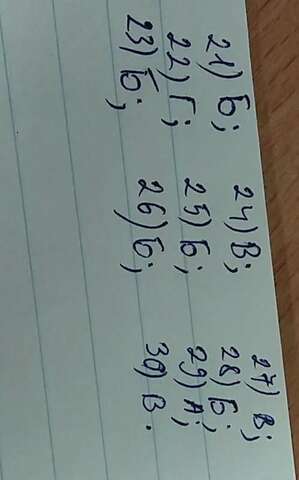 21) Б;
22) Г;
23) Б;
24) В;
25) Б;
26) Б;
27) В;
28) Б;
29) А;
30) В.